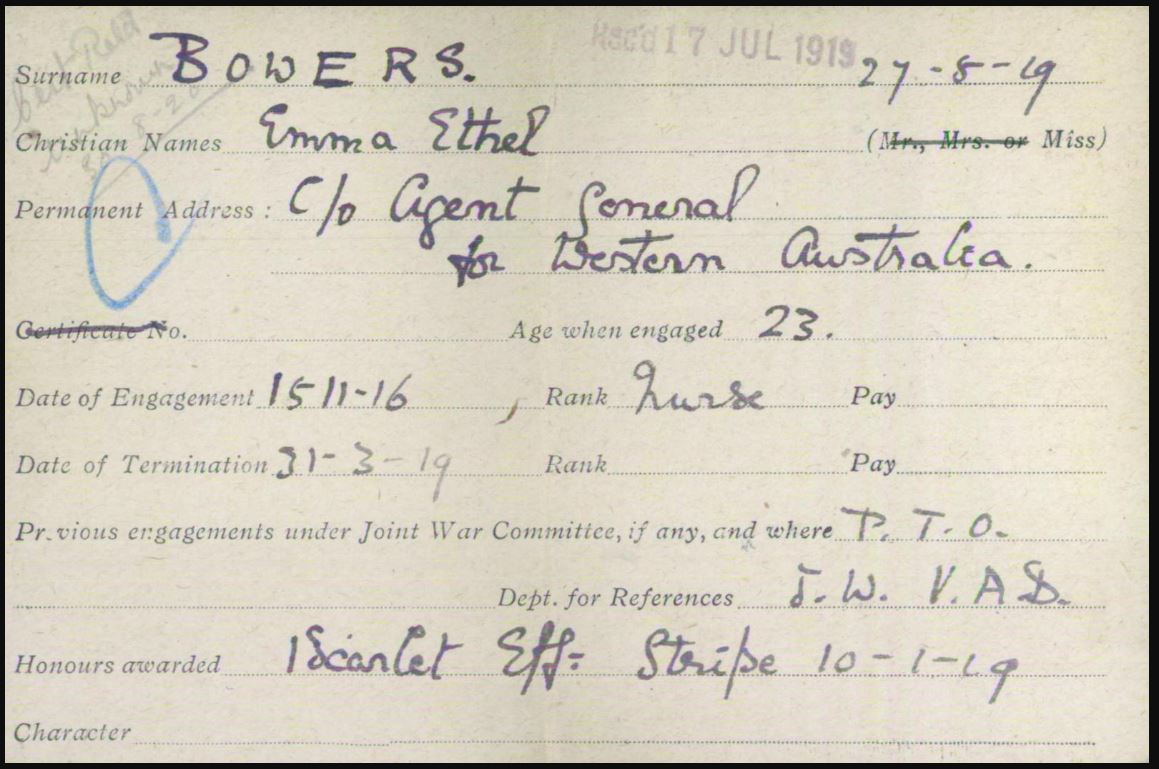 Rec'd 17 JUL 1919
Surname BOWERS. 27-8-19
Christian Names Emma Ethel (Mr., Mrs. or Miss)
Permanent Address: C/o Agent General
for Western Australia.
Certificate No. Age when engaged 23.
Date of Engagement 15 11-16 Rank Nurse Pay
Date of Termination 31-3-19 Rank Pay
Previous engagements under Joint War Committee, if any, and where P.T.O.
Dept. for References J.W. V.A.D.
Honours awarded 1 Scarlet Eff: Stripe 10-1-19
Character